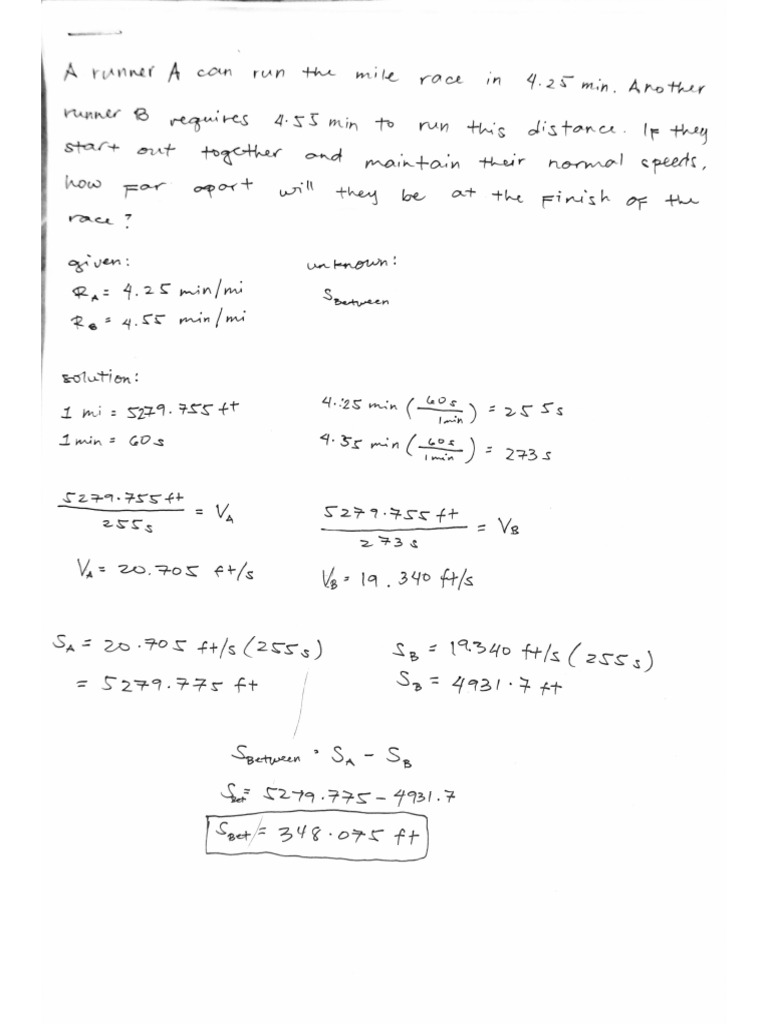 A runner A can run the mile race in 4.25 min. Another
runner B requires 4.55 min to run this distance. If they
start out together and maintain their normal speeds,
how far apart will they be at the finish of the
race?
given:
unknown:
R_A = 4.25 min/mi
S_Between
R_B = 4.55 min/mi
solution:
1 mi = 5279.755 ft
4.25 min (60s/1min) = 255s
1 min = 60s
4.55 min (60s/1min) = 273s
5279.755 ft/255s = V_A
5279.755 ft/273s = V_B
V_A = 20.705 ft/s
V_B = 19.340 ft/s
S_A = 20.705 ft/s (255s)
S_B = 19.340 ft/s (255s)
= 5279.775 ft
S_B = 4931.7 ft
S_Between = S_A - S_B
S_Bet = 5279.775 - 4931.7
S_Bet = 348.075 ft